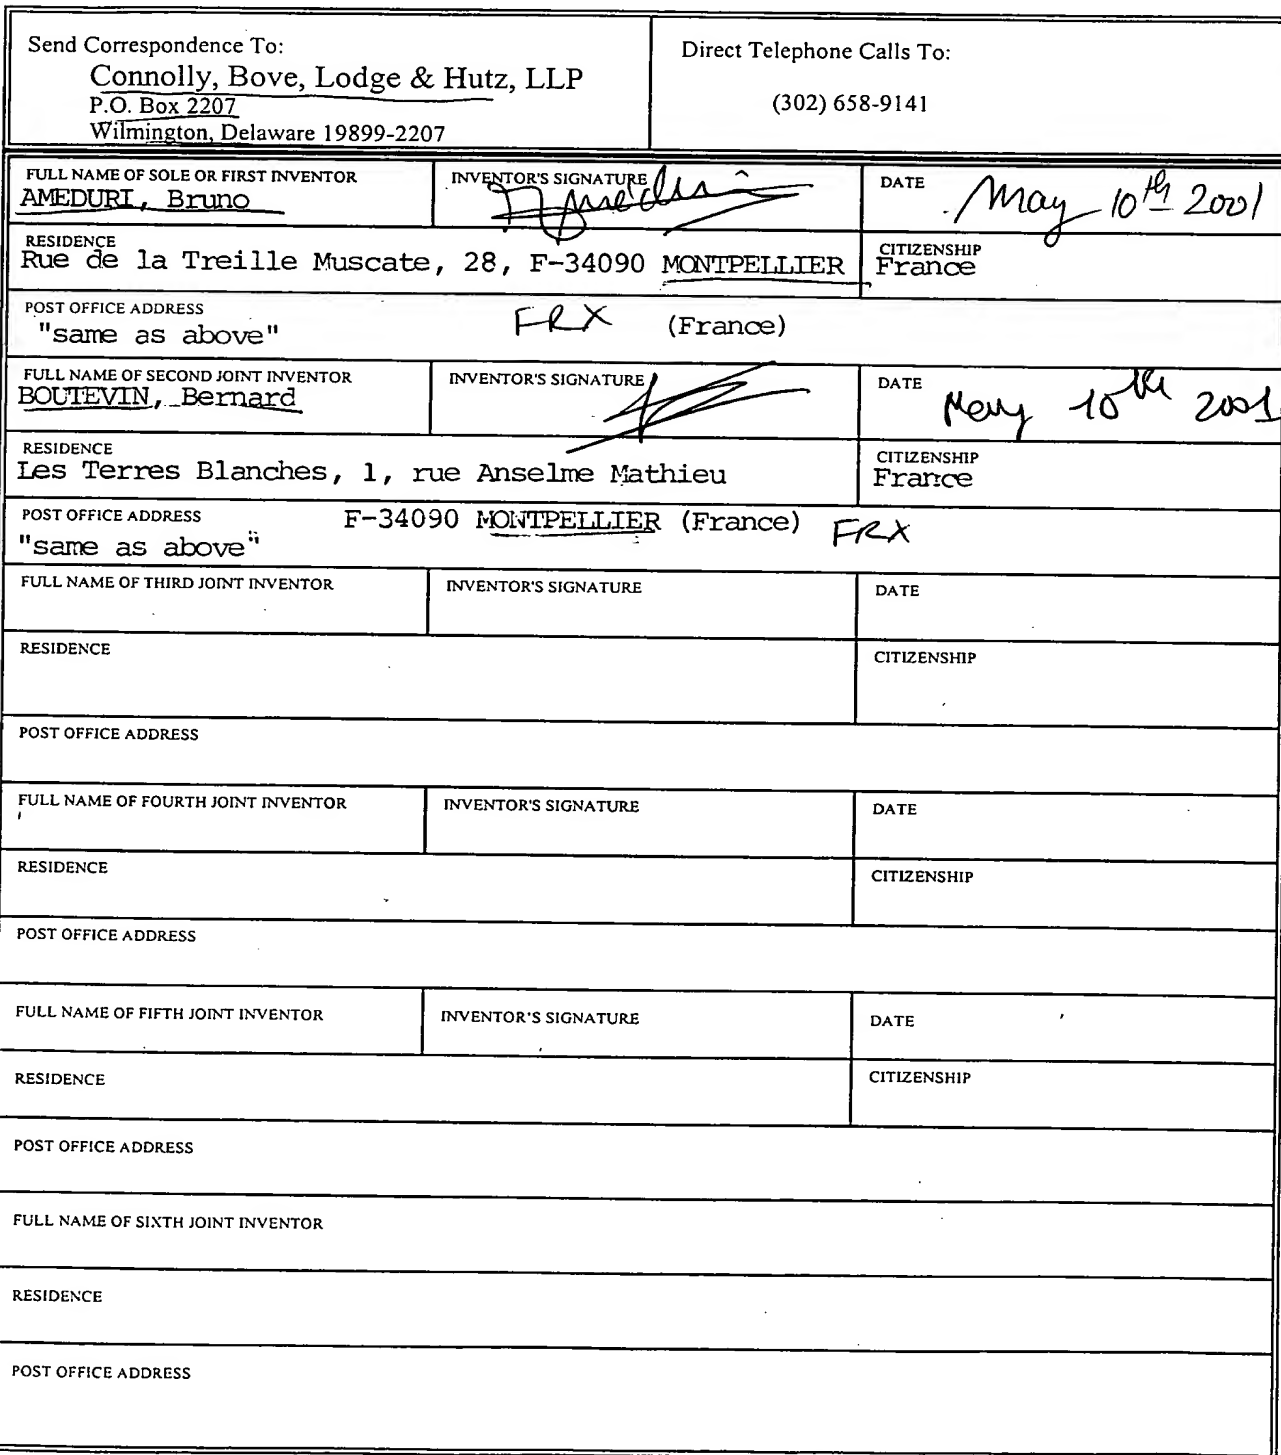 Send Correspondence To:
Connolly, Bove, Lodge & Hutz, LLP
P.O. Box 2207
Wilmington, Delaware 19899-2207
Direct Telephone Calls To:
(302) 658-9141
FULL NAME OF SOLE OR FIRST INVENTOR
AMEDURI, Bruno
INVENTOR'S SIGNATURE
DATE May 10th 2001
RESIDENCE
Rue de la Treille Muscate, 28, F-34090 MONTPELLIER
CITIZENSHIP
France
POST OFFICE ADDRESS
"same as above" FRX (France)
FULL NAME OF SECOND JOINT INVENTOR
BOUTEVIN, Bernard
INVENTOR'S SIGNATURE
DATE May 10th 2001
RESIDENCE
Les Terres Blanches, 1, rue Anselme Mathieu
CITIZENSHIP
France
POST OFFICE ADDRESS F-34090 MONTPELLIER (France) FRX
"same as above"
FULL NAME OF THIRD JOINT INVENTOR
INVENTOR'S SIGNATURE
DATE
RESIDENCE
CITIZENSHIP
POST OFFICE ADDRESS
FULL NAME OF FOURTH JOINT INVENTOR
INVENTOR'S SIGNATURE
DATE
RESIDENCE
CITIZENSHIP
POST OFFICE ADDRESS
FULL NAME OF FIFTH JOINT INVENTOR
INVENTOR'S SIGNATURE
DATE
RESIDENCE
CITIZENSHIP
POST OFFICE ADDRESS
FULL NAME OF SIXTH JOINT INVENTOR
RESIDENCE
POST OFFICE ADDRESS